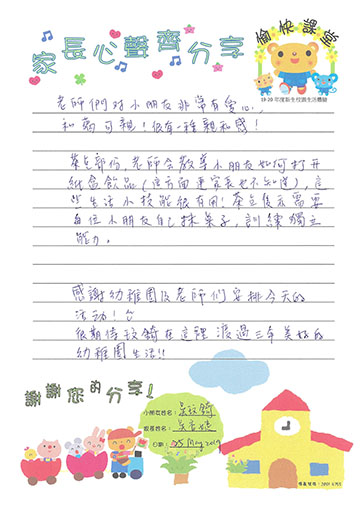 家長心聲齊分享
愉快課堂
19-20 年度新生校園生活體驗
老師們對小朋友非常有愛心，
和藹可親！很有一種親和感！
茶點部份，老師會教導小朋友如何打開
紙盒飲品（這方面連家長也不知道），這
些生活小技能很有用！茶點後亦需要
每位小朋友自己抹桌子，訓練獨立
能力。
感謝幼稚園及老師們安排今天的
活動！
很期待 在這裡渡過三年美好的
幼稚園生活!!
謝謝您的分享！
小朋友姓名：
家長姓名：
日期： 25 May 2019